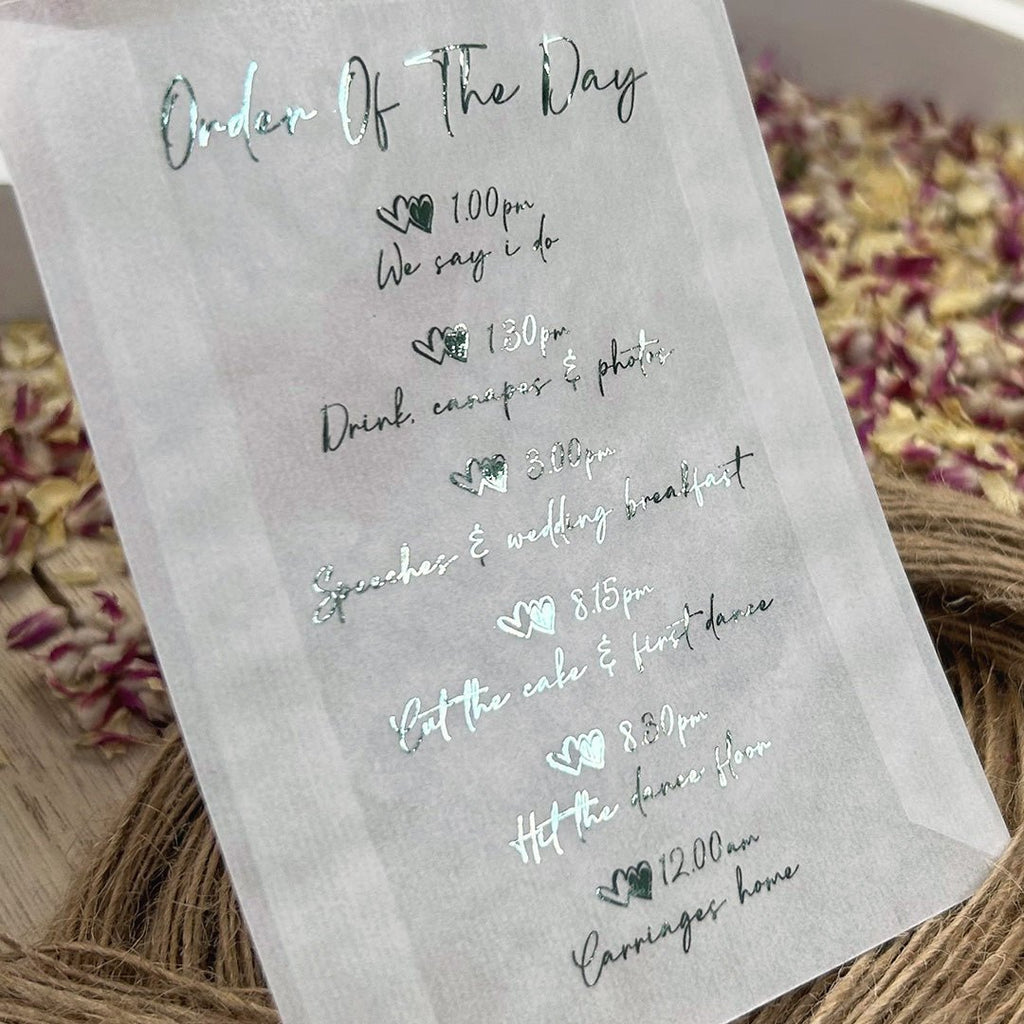 Order Of The Day
1.00pm
We say i do
1.30pm
Drink, canapes & photos
3.00pm
Speeches & wedding breakfast
8.15pm
Cut the cake & first dance
8.30pm
Hit the dance floor
12.00am
Carriages home